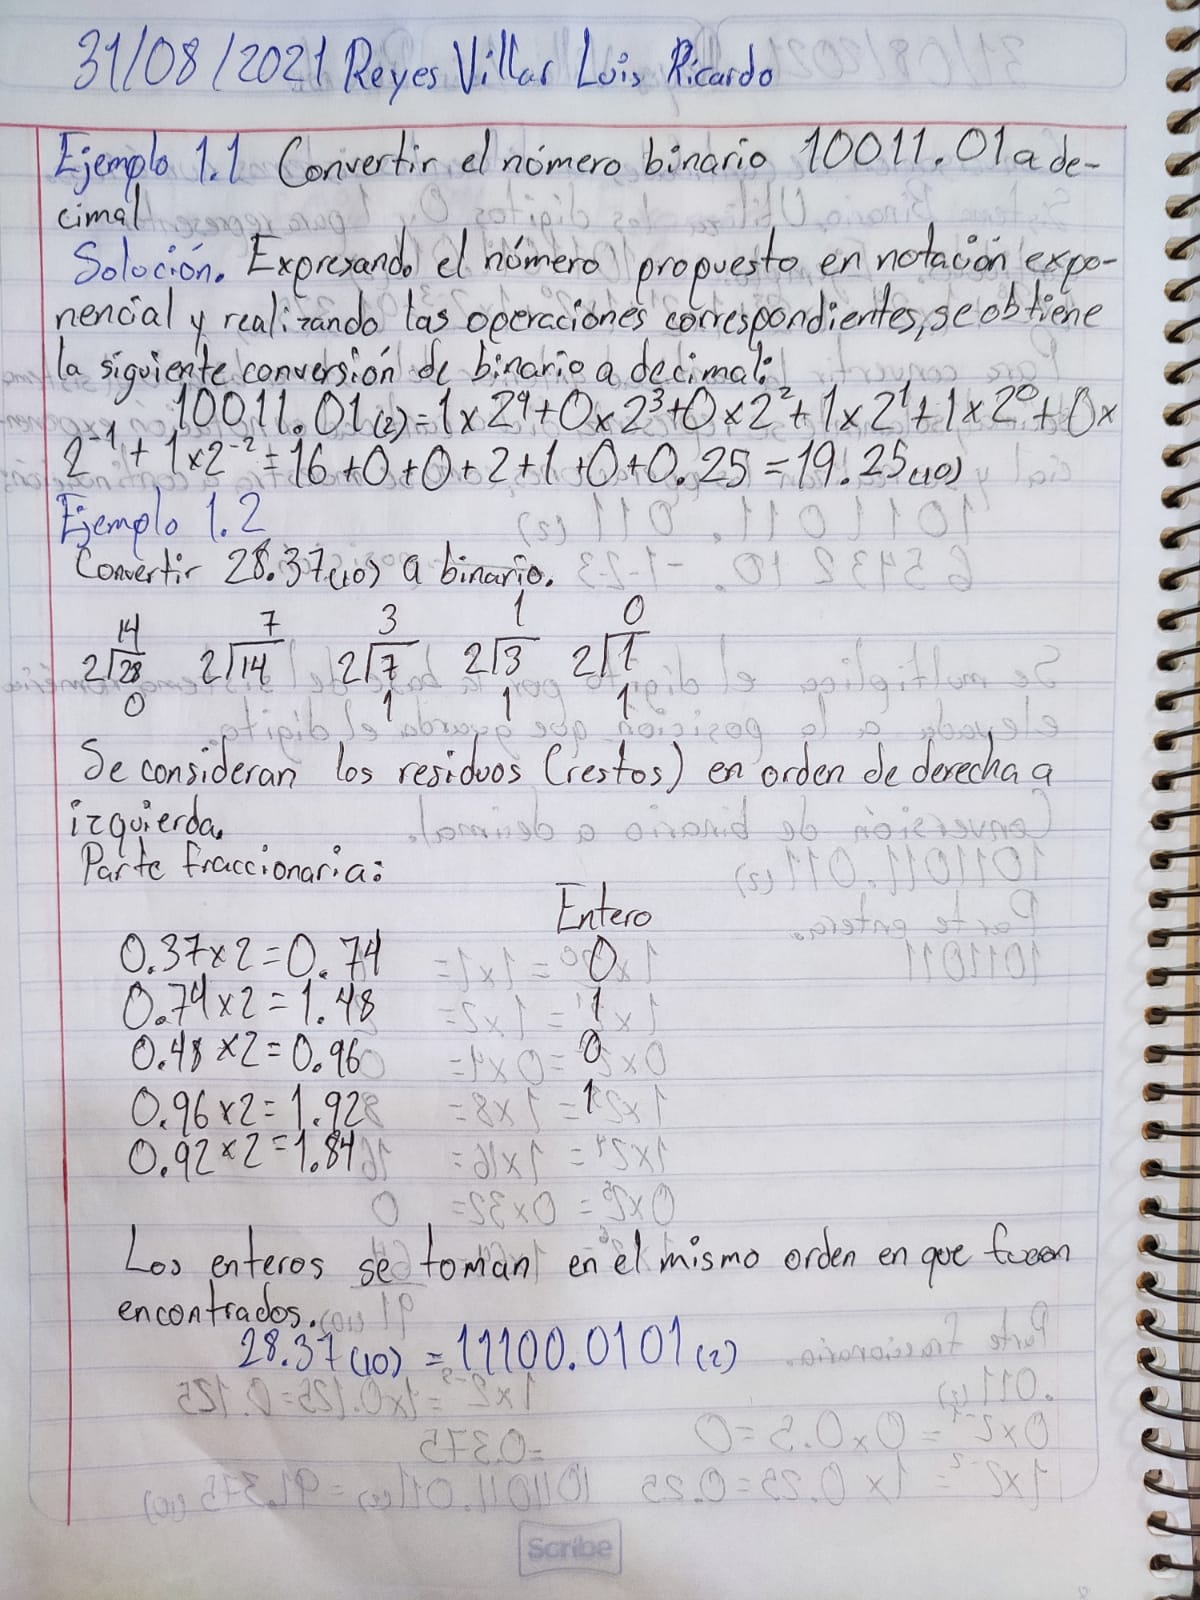 31/08/2021 Reyes Villar Luis Ricardo
Ejemplo 1.1 Convertir el número binario 10011.01 a de-
cimal
Solución. Expresando el número propuesto en notación expo-
nencial y realizando las operaciones correspondientes, se obtiene
la siguiente conversión de binario a decimal:
10011.01(2)=1x2⁴+0x2³+0x2²+1x2¹+1x2⁰+0x
2⁻¹+1x2⁻²=16+0+0+2+1+0+0.25=19.25(10)
Ejemplo 1.2
Convertir 28.37(10) a binario.
14 7 3 1 0
2√28 2√14 2√7 2√3 2√1
0 1 1 1
Se consideran los residuos (restos) en orden de derecha a
izquierda.
Parte fraccionaria:
Entero
0.37x2=0.74 0
0.74x2=1.48 1
0.48x2=0.96 0
0.96x2=1.92 1
0.92x2=1.84
Los enteros se toman en el mismo orden en que fueron
encontrados.
28.37(10)=11100.0101(2)
Scribe